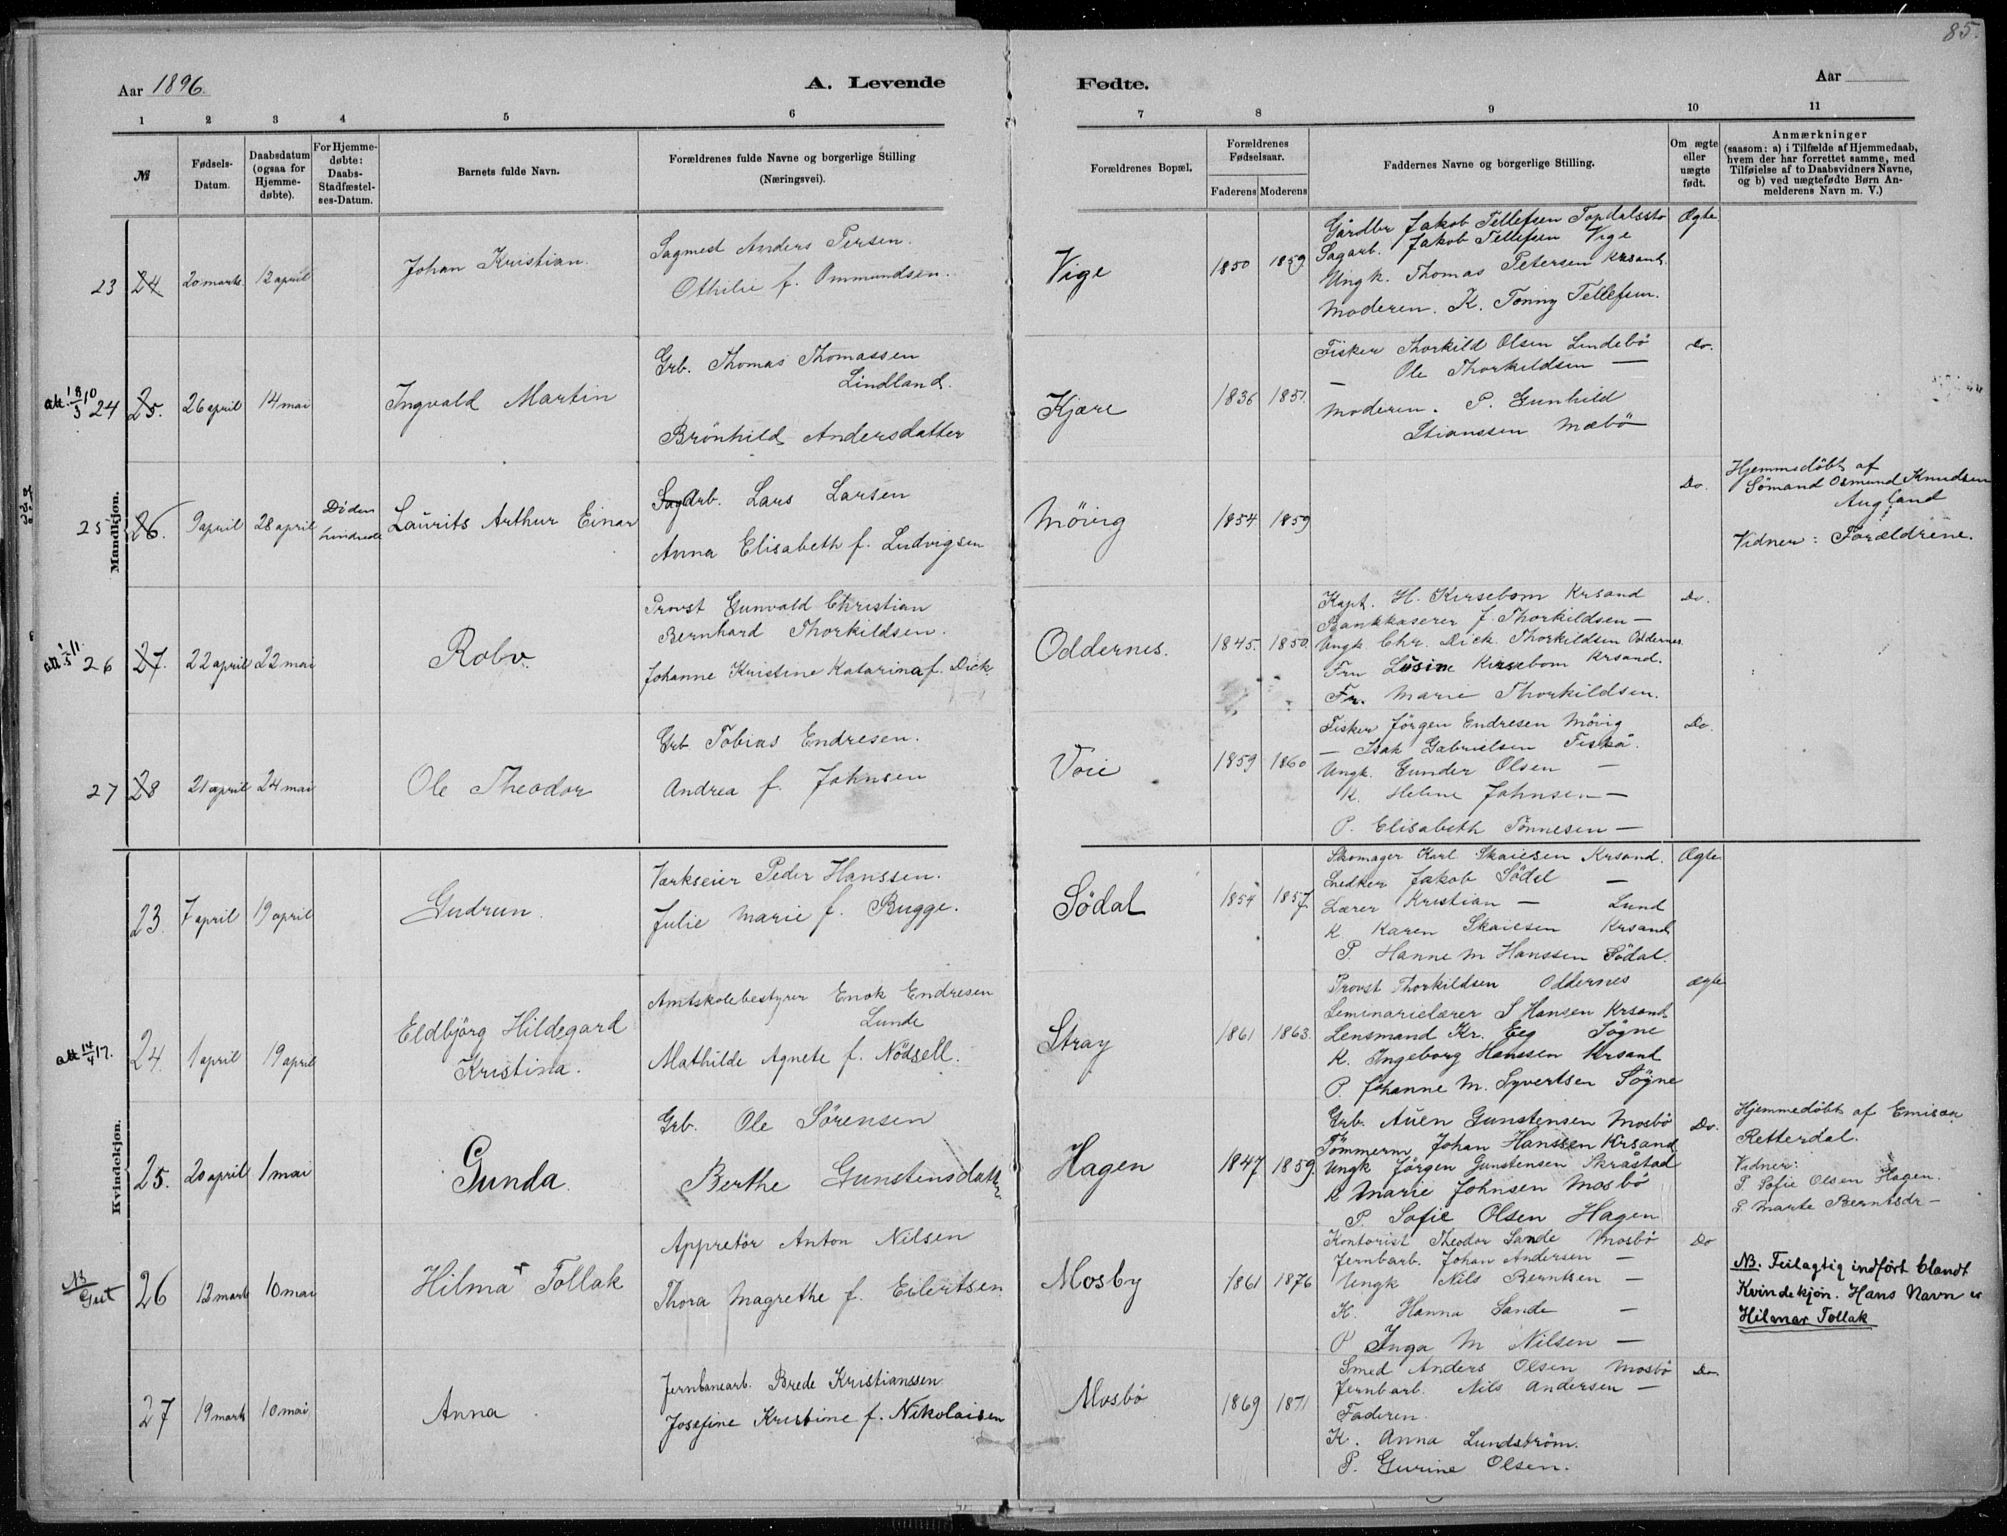 85.
Aar 1896.
A. Levende
Fødte.
Aar
1 2 3 4 5 6 7 8 9 10 11
№
Fødsels-
Datum.
Daabsdatum
(ogsaa for
Hjemme-
døbte).
For Hjemme-
døbte:
Daabs-
Stadfæstel-
ses-Datum.
Barnets fulde Navn.
Forældrenes fulde Navne og borgerlige Stilling
(Næringsvei).
Forældrenes Bopæl.
Forældrenes
Fødselsaar.
Faderens Moderens
Faddernes Navne og borgerlige Stilling.
Om ægte
eller
uægte
født.
Anmærkninger
(saasom: a) i Tilfælde af Hjemmedaab,
hvem der har forrettet samme, med
Tilføielse af to Daabsvidners Navne,
og b) ved uægtefødte Børn An-
melderens Navn m. V.)
Mandkjøn.
23 24 20 marts 12 april
Johan Kristian.
Sagmest Anders Persen.
Othilie f. Ommundsen.
Vige
1850 1859
Gårdbr Jakob Tellefsen Topdalsstø
Sagarb. Jakob Tellefsen Vige
Ungk. Thomas Petersen Krsand.
Moderen. K. Tonny Tellefsen.
Ægte
att. 18/3 10 24 25. 26 april 14 mai
Ingvald Martin
Grb. Thomas Thomassen
Lindland.
Brönhild Andersdatter
Kjære
1836 1851.
Fisker Thorkild Olsen Lindebö
— Ole Thorkildsen —
Moderen. P. Gunhild
Stianssen Mæbö
Do.
25 26. 9 april 28 april
Döden
hindrede
Laurits Arthur Einar
Sagarb. Lars Larsen
Anna Elisabeth f. Ludvigsen
Mövig
1854 1859
Do.
Hjemmedöbt af
Sömand Osmund Knudsen
Augland
Vidner: Forældrene.
att. 1/5 11. 26 27. 22 april 22 mai
Rolv.
Provst Gunvald Christian
Bernhard Thorkildsen.
Johanne Kristine Katarina f. Dick.
Oddernes.
1845. 1850.
Kapt. H. Kirsebom Krsand
Bankkaserer J. Thorkildsen —
Ungk Chr. Dick Thorkildsen Oddernes
Fru Lusine Kirsebom Krsand.
Fr. Marie Thorkildsen.
Do.
27 28 21 april 24 mai
Ole Theodor
Grb Tobias Endresen.
Andrea f. Johnsen
Voie
1859 1860
Fisker Jörgen Endresen Mövig
— Isak Gabrielsen Fiskå.
Ungk. Gunder Olsen —
K. Helene Johnsen —
P. Elisabeth Tönnesen —
Do.
Kvindekjøn.
23. 7 april 19 april
Gudrun.
Værkseier Peder Hanssen.
Julie Marie f. Bugge.
Södal
1854 1857.
Skomager Karl Skaiesen Krsand.
Snedker Jakob Södel —
Lærer Kristian — Lund
K Karen Skaiesen Krsand
P. Hanne M Hanssen Södal.
Ægte
att 14/4 17. 24. 1 april 19 april
Eldbjörg Hildegard
Kristina.
Amtskolebestyrer Enok Endresen
Lunde
Mathilde Agnete f. Nödsell.
Stray
1861 1863.
Provst Thorkildsen Oddernes
Seminarielærer S Hansen Krsand
Lensmand Kr. Eeg Søgne
K. Ingeborg Hanssen Krsand
P. Johanne M. Syvertsen Søgne
ægte
25. 20 april 1 mai
Gunda.
Grb. Ole Sörensen
Berthe Gunstensdatter
Hagen
1847 1859
Grb. Auen Gunstensen Mosbö
Tömmerm Johan Hanssen Krsand
Ungk Jörgen Gunstensen Skråstad
K Marie Johnsen Mosbö
P. Sofie Olsen Hagen
Do.
Hjemmedöbt af Emisær
Retterdal.
Vidner:
P. Sofie Olsen Hagen.
P. Marte Berntsdr —
NB
Gut 26 13 marts 10 mai
Hilma r Tollak
Appretör Anton Nilsen
Thora Magrethe f. Eilertsen
Mosby
1861 1876
Kontorist Theodor Sande Mosbö
Jernbarb. Johan Andersen —
Ungk Nils Berntsen —
K. Hanna Sande —
P Inga M Nilsen —
Do
NB. Feilagtig indfört blandt
Kvindekjön. Hans Navn er
Hilmar Tollak
27 19 marts 10 mai
Anna
Jernbanearb. Brede Kristianssen
Josefine Kristine f. Nikolaisen
Mosbö
1869 1871
Smed Anders Olsen Mosbö
Jernbarb. Nils Andersen —
Faderen.
K. Anna Lundström.
P. Gurine Olsen.
Do.